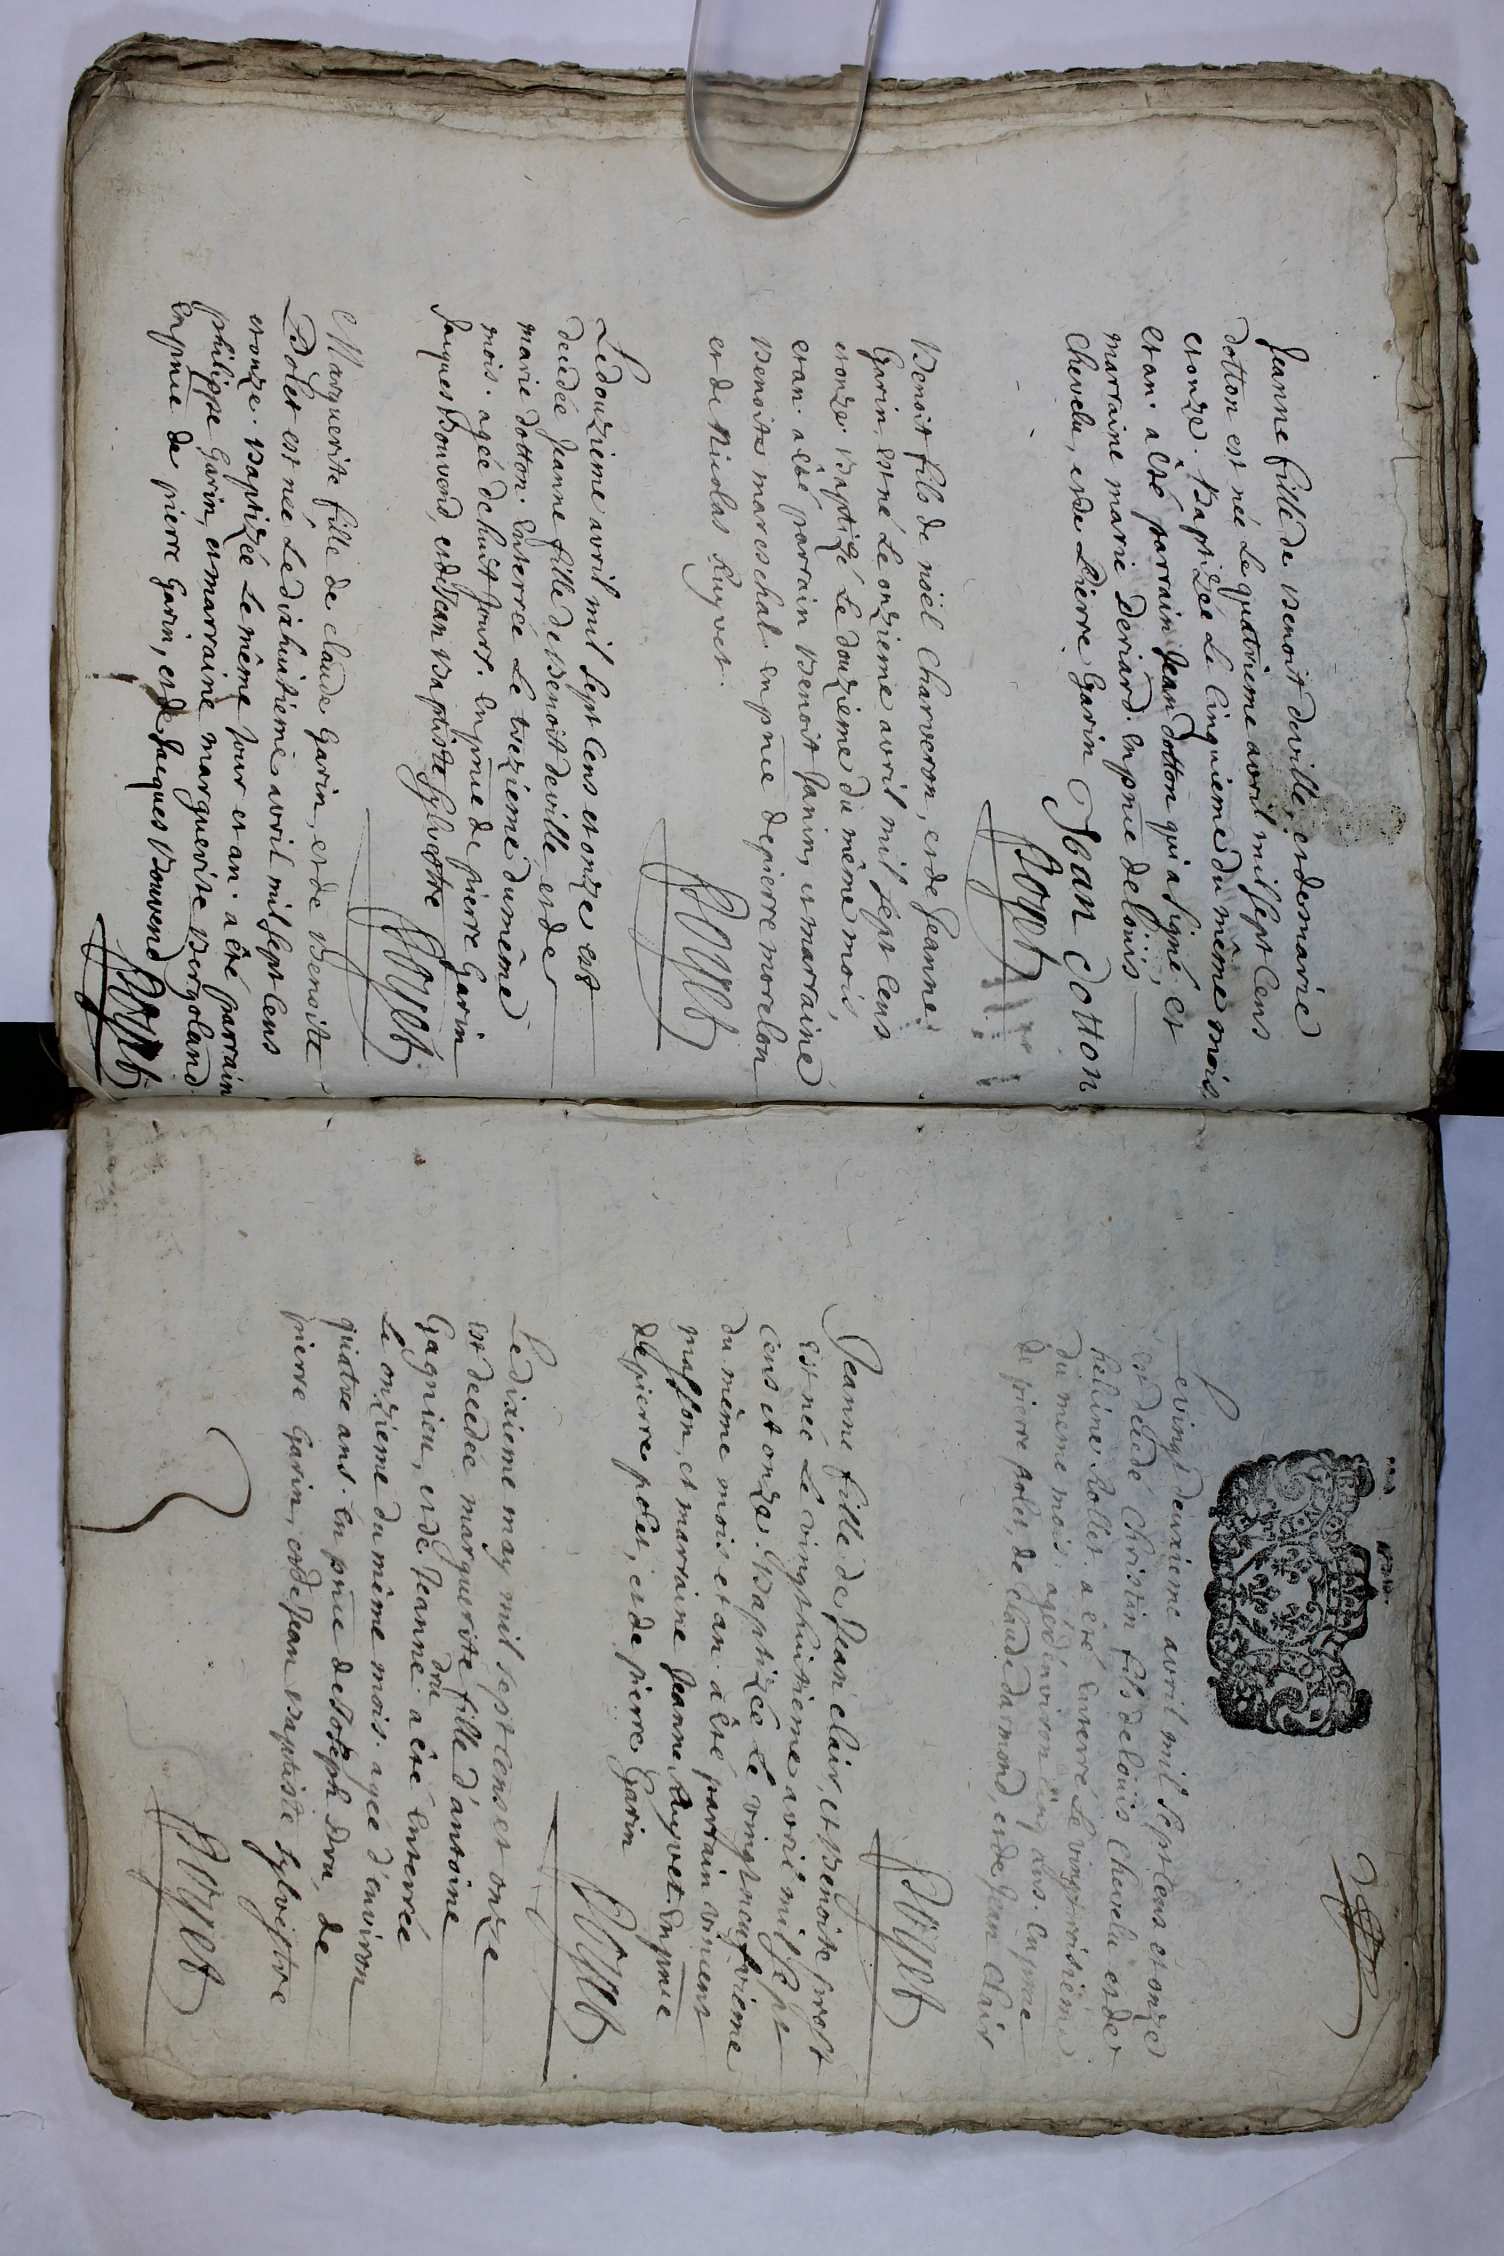 Jeanne fille de Benoit deville, et de marie
dotton est née Le quatrieme avril mil sept Cens
et onze. Baptizée Le Cinquieme du même mois
et an. a été parrain Jean dotton qui a signé, et
marraine marie Deriard. En pnce de Loüis
Chevelu, et de Pierre Garin
Jean dotton
Roÿet
Benoit fils de noël Charveron, et de Jeanne
Garin est né Le onzieme avril mil sept Cens
et onze. Baptizé Le douzieme du même mois
et an. a été parrain Benoit Janin, et marraine
Benoite mareschal. En pnce de pierre morelon
et de Nicolas Ruyvet.
Roÿet
Le douzieme avril mil sept Cens et onze est
decedée Jeanne fille de Benoit deville et de
marie dotton. Enterrée Le treizieme du même
mois. agée de huit jours. En pnce de pierre Garin
Jacques Bouvend, et de Jean Baptiste Sylvestre
Roÿet
Marguerite fille de Claude Garin, et de Benoite
Polet est née Le dixhuitieme avril mil sept Cens
et onze. Baptizée Le même jour et an. a été parrain
philippe Garin, et marraine marguerite Bergoland
En pnce de pierre Garin, et de Jacques Bouvend
Roÿet
Le vingt deuxieme avril mil sept Cens et onze
est décedé Christin fils de Loüis Chevelu et de
heleine Rollet a été Enterré Le vingt troisiéme
du meme mois. agé d'environ Cinq ans. En pnce
de pierre polet, de Claude damond, et de Jean Clair
Roÿet
Jeanne fille de Jean Clair, et Benoite prost
Est née Le vingt huitieme avril mil sept
Cens et onze. Baptizée Le vingt neufvieme
du même mois et an. a été parrain vincent
masson, et marraine Jeanne Ruyvet. En pnce
de pierre polet, et de pierre Garin
Roÿet
Le dixieme may mil sept Cens et onze
est decedée marguerite fille d'antoine
Gagnieu, et de Jeanne dru a été Enterrée
Le onzieme du même mois. agée d'environ
quatre ans. En pnce de Joseph Dru, de
pierre Garin, et de Jean Baptiste Sylvestre
Roÿet